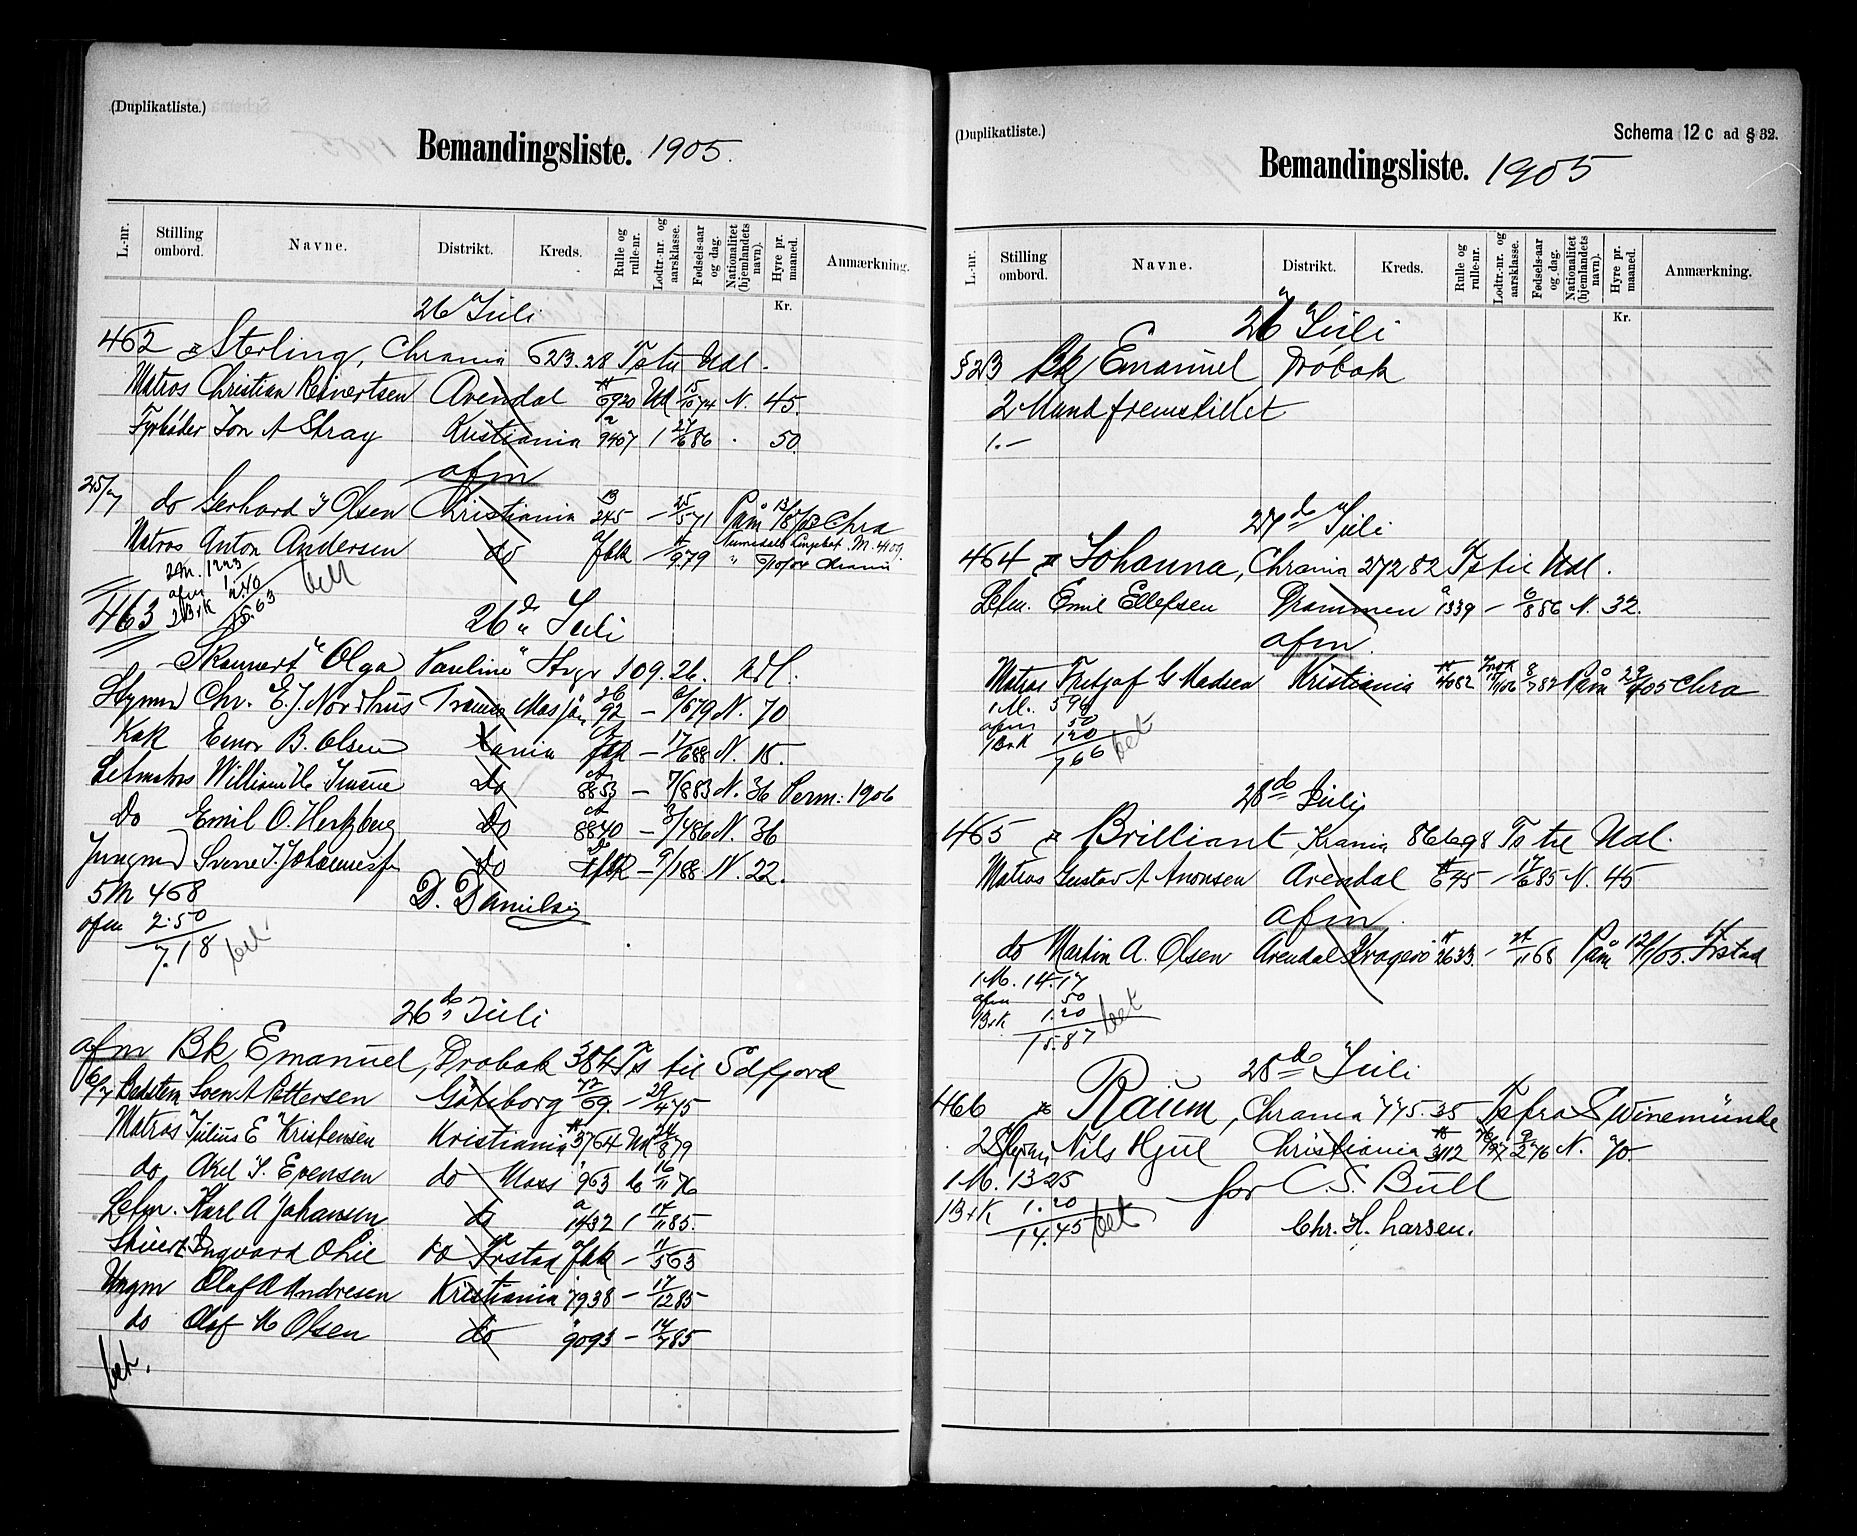 (Duplikatliste.)
Bemandingsliste. 1905.
L.-nr. Stilling ombord. Navne. Distrikt. Kreds. Rulle og rulle-nr. Lodtr.-nr. og aarsklasse. Fødsels-aar og dag. Nationalitet (hjemlandets navn). Hyre pr. maaned. Anmærkning.
Kr.
26 Juli
462 Sterling, Chrania 623.28 Ts til Udl.
Matros Christian Reinertsen Arendal 6920 Ud 15/10 74 N. 45.
Fyrbøder Jon A Stray Kristiania 9407 1 27/6 86 50
afm
25/7 do Gerhard J Olsen Kristiania 13 245 — 25/5 71 Paam Chra
Matros Anton Andersen do fbk 979 M. 409.
2 M. 12.23
afm 1.
2 B&K 2.40
15.63 bet
463 26 d Juli
Skonnert "Olga Pauline" Stvgr 109.26. Udl.
Styrmd Chr. E. J. Nordhus Mosjøn 92 — 6/6 79 N. 70
Kok Einar B. Olsen Xania fbk — 17/6 88 N. 15.
Letmatros William H. do 8853 — 7/8 83 N. 36 Perm: 1906
Do Emil O. Hertzberg Do 8840 — 3/4 86 N. 36
Jungmd Svene J. Johannesf Do fbk — 9/1 88 N. 22.
5 M 4.68 D. Danielsen
afm 2.50
7.18 bet
26 do Juli
afm Bk Emanuel, Drøbak 384 Ts til
6/7 Sven A Pettersen Gøteborg 72/69. — 29/4 75
Matros Julius E Kristensen Kristiania 3764 Ud 24/8 79
do Axel J. Evensen do Moss 963 do 16/11 76
Letm. Karl A Johansen do a 1432 1 14/11 85.
Stuert Ingvard Ohie do Frstad fbk — 11/5 63
Ungm Olaf A Andresen Kristiania 7938 — 17/12 85
do Olaf M Olsen do 9093 — 14/7 85
bet.
(Duplikatliste.)
Schema 12 c ad § 32.
Bemandingsliste. 1905
L.-nr. Stilling ombord. Navne. Distrikt. Kreds. Rulle og rulle-nr. Lodtr.-nr. og aarsklasse. Fødsels-aar og dag. Nationalitet (hjemlandets navn). Hyre pr. maaned. Anmærkning.
Kr.
26 Juli
§ 23 Bk Emanuel Drøbak
2 Mand fremstillet
1.—
27 do Juli
464 Johanna, Chrania 272 82 Ts til Udl.
Letm. Emil Ellefsen Drammen a 1339 — 6/8 86 N. 32.
afm.
Matros Fritjof G Madsen Kristiania 4082 8/7 82 Paam 29/4 05 Chra
1 M. 5 96
afm 50
B&K 1.20
7 66 bet
28 do Juli
465 Brilliant, Krania 866.98 Ts til Udl.
Matros Gustav A Aronsen Arendal 645 — 17/6 85 N. 45
afm.
do Martin A. Olsen Arendal Kragerø 2633. — 24/11 68 Paam 12/1 05. Frstad
1 M. 14.17
afm 50
B&K 1.20
15.87 bet
28 do Juli
466 Raum, Chrania 775.35 Ts fra Swinemünde
2 Styrm. Nils Hjul Christiania 3112 9/2 76 N. 70.
1 M. 13 25 for C. S. Bull
B&K 1.20 Chr. H. Larsen.
14.45 bet